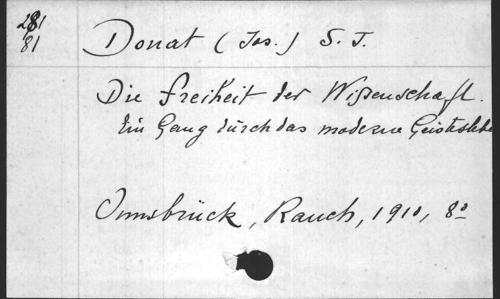 281
81
Donat (Jos.) S. J.
Die Freiheit der Wißenschaft.
Ein Gang durch das moderne Geistesleben
Innsbrück, Rauch, 1910, 8º